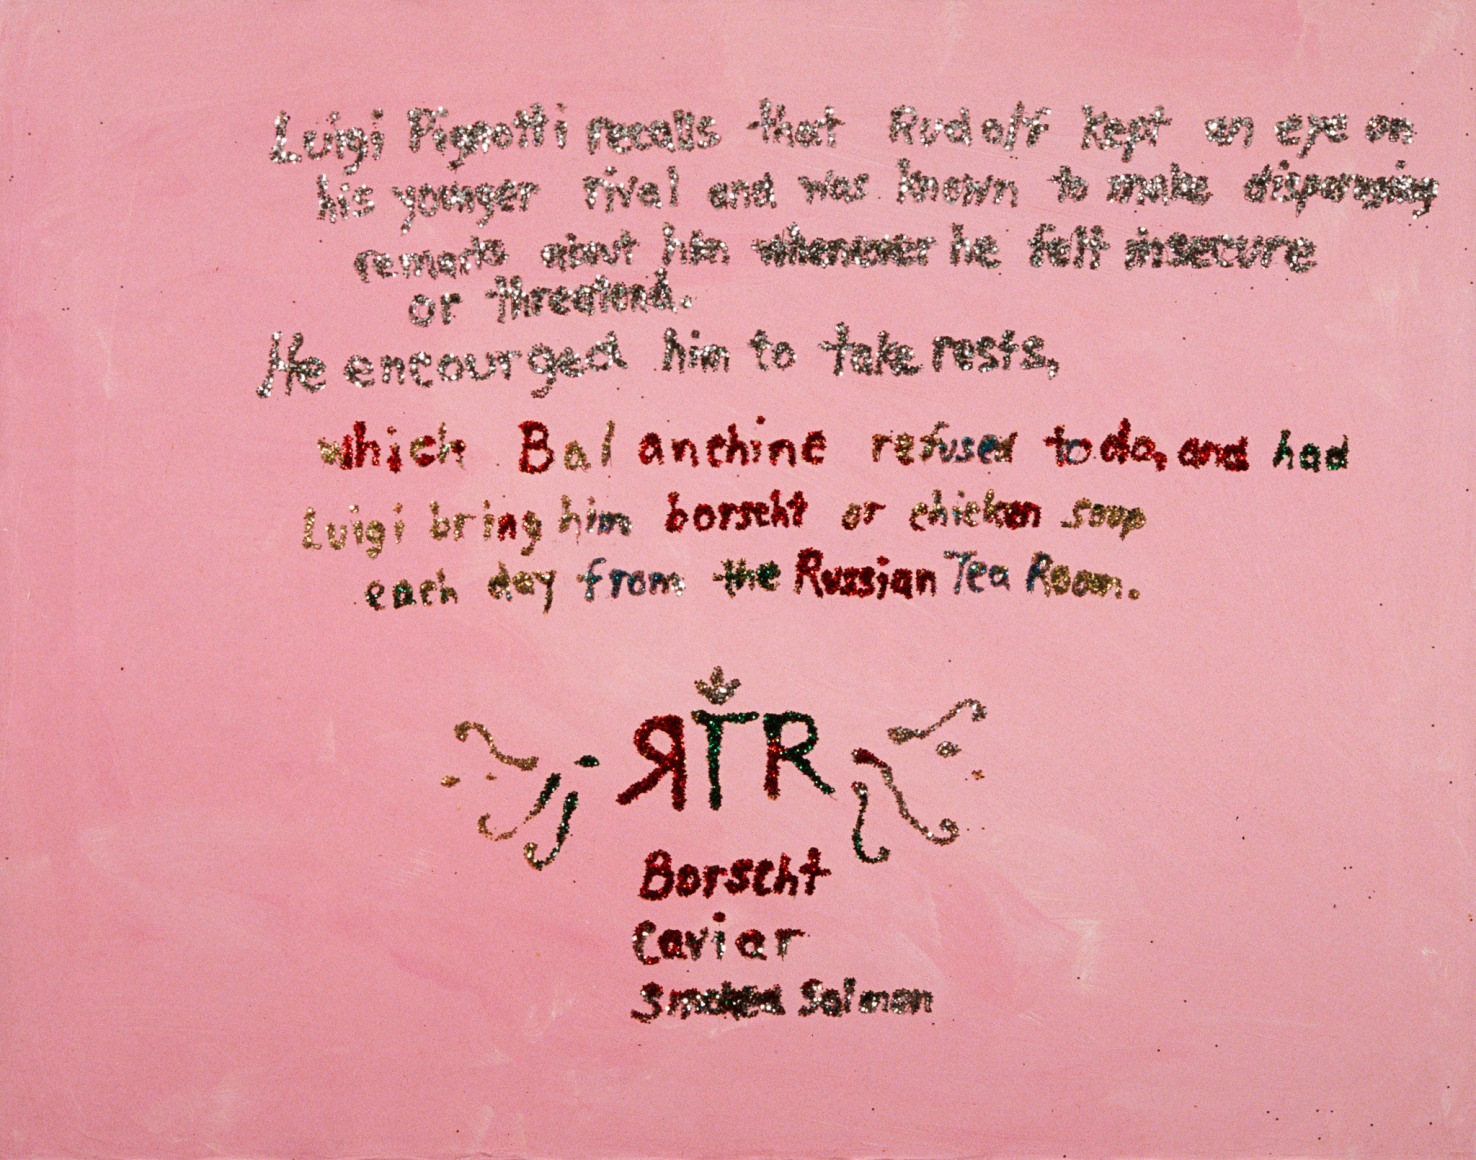 Luigi Pignotti recalls that Rudolf kept an eye on
his younger rival and was known to make disparaging
remarks about him whenever he felt insecure
or threatend.
He encourged him to take rests,
which Balanchine refused to do, and had
Luigi bring him borscht or chicken soup
each day from the Russian Tea Room.
ЯTR
Borscht
Caviar
Smoked Salmon